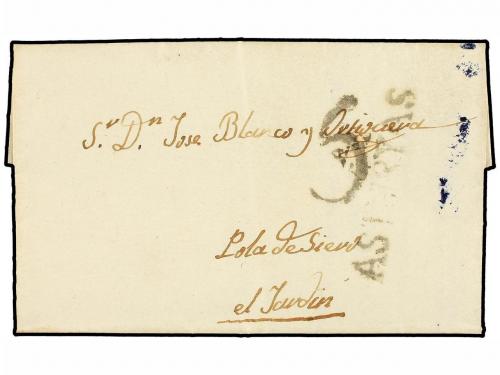 Sr. Dn. Jose Blanco y
Pola de Siero
el Jardin
ASTURIAS